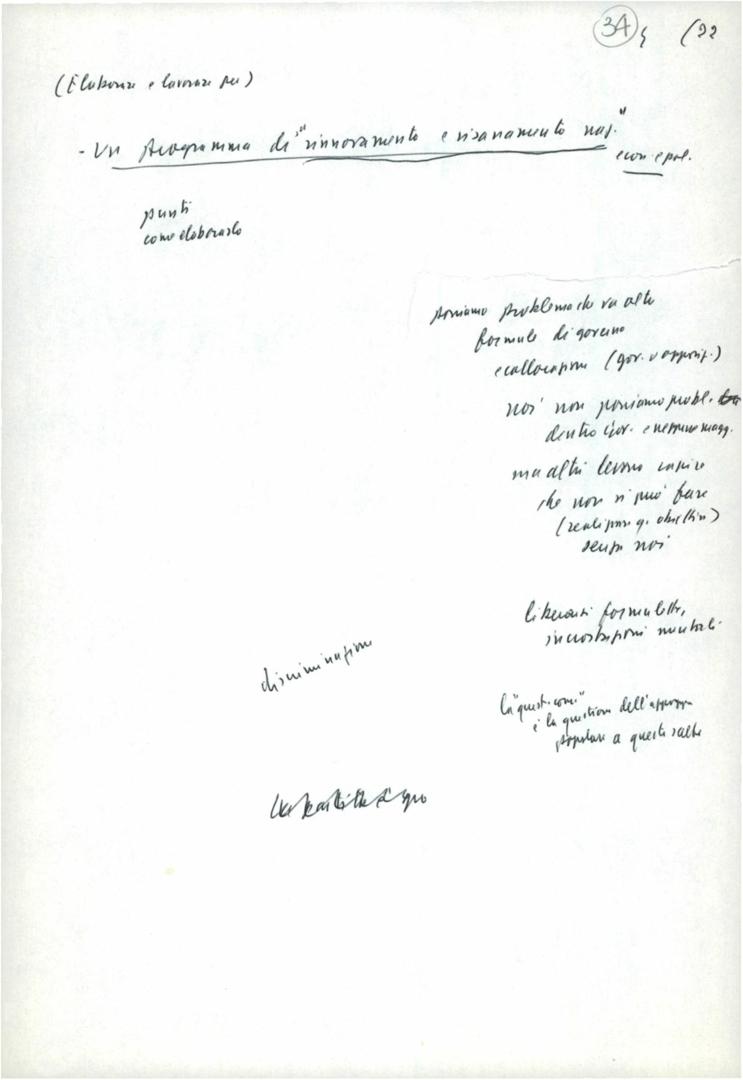 34 (22
(Elaborare e lavorare per)
- Un programma di "rinnovamento e risanamento naz."
econ. e pol.
punti
come elaborarlo
poniamo problema che va oltre
formule di governo
e collocazione (gov. o opposiz.)
noi non poniamo probl.
dentro gov. e neppure magg.
ma altri devono capire
che non si può fare
(realizzare q. obiettivi)
senza noi
liberarsi formulette,
incrostazioni mentali
discriminazione
la "quest. com."
è la questione dell'appoggio
popolare a queste scelte